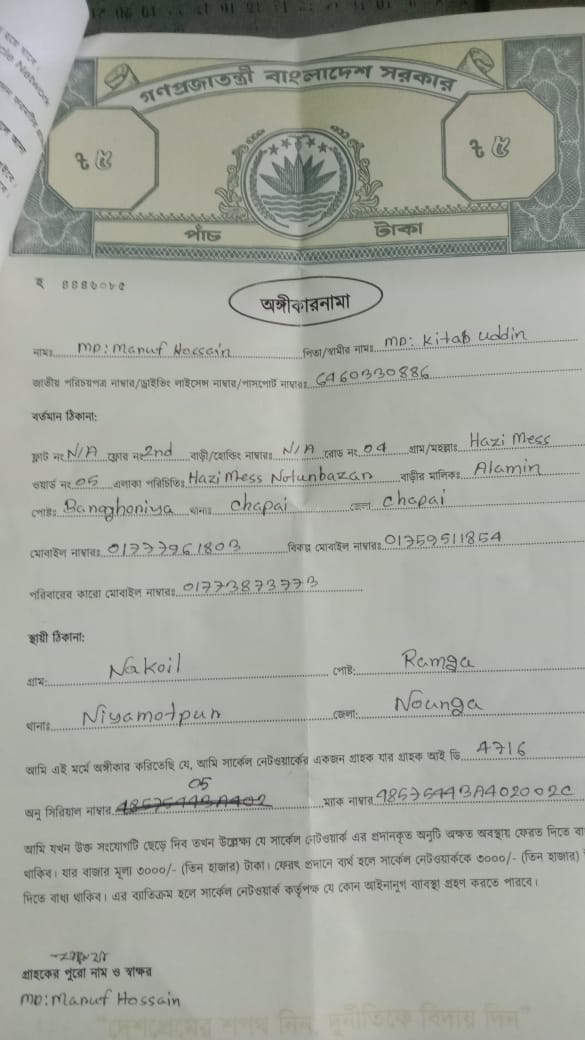 গণপ্রজাতন্ত্রী বাংলাদেশ সরকার
৳ ৫
৳ ৫
পাঁচ টাকা
অঙ্গীকারনামা
নামঃ MD: Manuf Hossain পিতা/স্বামীর নামঃ MD: Kitab uddin
জাতীয় পরিচয়পত্র নাম্বার/ড্রাইভিং লাইসেন্স নাম্বার/পাসপোর্ট নাম্বারঃ 6460330886
বর্তমান ঠিকানা:
ফ্লাট নং N/A ফ্লোর নং 2nd বাড়ী/হোল্ডিং নাম্বারঃ N/A রোড নং 04 গ্রাম/মহল্লাঃ Hazi Mess
ওয়ার্ড নং 05 এলাকা পরিচিতিঃ Hazi Mess Notunbazar বাড়ীর মালিকঃ Alamin
পোষ্টঃ Bangghoniya থানাঃ chapai জেলা chapai
মোবাইল নাম্বারঃ 01777961803 বিকল্প মোবাইল নাম্বারঃ 01759511854
পরিবারের কারো মোবাইল নাম্বারঃ 01773873773
স্থায়ী ঠিকানা:
গ্রাম: Nakoil পোষ্ট: Ramga
থানাঃ Niyamotpur জেলা: Nounga
আমি এই মর্মে অঙ্গীকার করিতেছি যে, আমি সার্কেল নেটওয়ার্কের একজন গ্রাহক যার গ্রাহক আই ডি 4716
05
অনু সিরিয়াল নাম্বার ম্যাক নাম্বার 48575443A402002C
আমি যখন উক্ত সংযোগটি ছেড়ে দিব তখন উল্লেক্ষ্য যে সার্কেল নেটওয়ার্ক এর প্রদানকৃত অনুটি অক্ষত অবস্থায় ফেরত দিতে বা
থাকিব। যার বাজার মূল্য ৩০০০/- (তিন হাজার) টাকা। ফেরৎ প্রদানে ব্যর্থ হলে সার্কেল নেটওয়ার্ককে ৩০০০/- (তিন হাজার)
দিতে বাধ্য থাকিব। এর ব্যতিক্রম হলে সার্কেল নেটওয়ার্ক কর্তৃপক্ষ যে কোন আইনানুগ ব্যবস্থা গ্রহণ করতে পারবে।
গ্রাহকের পুরো নাম ও স্বাক্ষর
MD: Manuf Hossain
"দেশপ্রেমের শপথ নিন, দুর্নীতিকে বিদায় দিন"